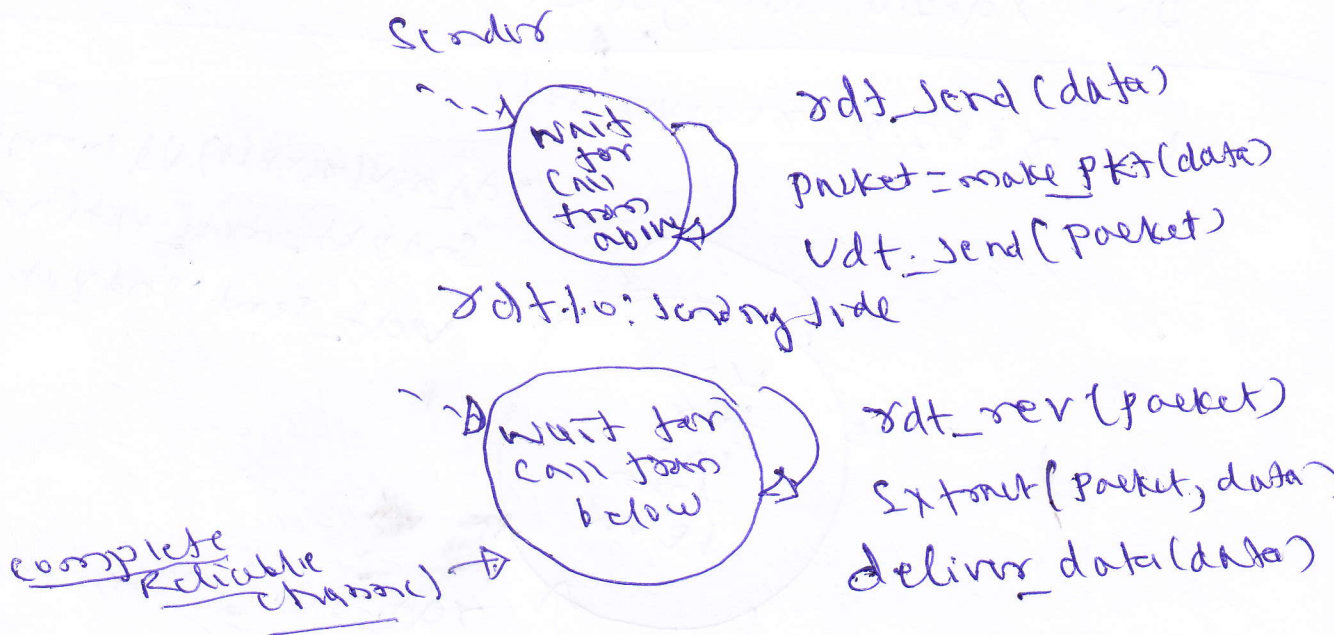 Sender
wait
for
call
from
above
rdt_send (data)
packet = make_pkt (data)
Udt_send (packet)
rdt 1.0: sending side
wait for
call from
below
rdt_rcv (packet)
extract (packet, data)
deliver_data (data)
complete
Reliable
channel